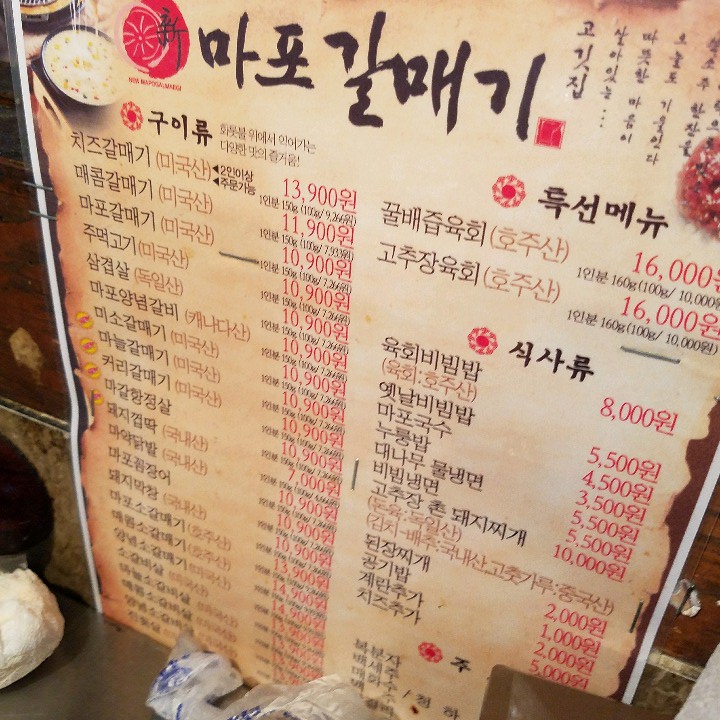 新
NEW MAPOGALMAEGI
마포갈매기
고깃집
살아있는...
따뜻한 마음이
오늘도 기울인다
구이류
화롯불 위에서 익어가는
다양한 맛의 즐거움!
치즈갈매기 (미국산) ◀2인이상 ◀주문가능 13,900원
1인분 150g (100g/ 9,266원)
매콤갈매기 (미국산) 11,900원
1인분 150g (100g/ 7,933원)
마포갈매기 (미국산) 10,900원
1인분 150g (100g/ 7,266원)
주먹고기 (미국산) 10,900원
1인분 150g (100g/ 7,266원)
삼겹살 (독일산) 10,900원
1인분 150g (100g/ 7,266원)
마포양념갈비 (캐나다산) 10,900원
1인분 150g (100g/ 7,266원)
미소갈매기 (미국산) 10,900원
1인분 150g (100g/ 7,266원)
마늘갈매기 (미국산) 10,900원
1인분 150g (100g/ 7,266원)
커리갈매기 (미국산) 10,900원
마갈항정살
돼지껍딱 (국내산) 7,000원
마약닭발 (국내산) 10,900원
마포꼼장어 10,900원
돼지막창 (국내산) 10,900원
마포소갈매기 (호주산) 13,900원
매콤소갈매기 (호주산) 14,900원
양념소갈매기 (미국산) 14,900원
소갈비살 (미국산)
마늘소갈비살
매콤소갈비살
양념소갈비살
흑선메뉴
꿀배즙육회 (호주산) 16,000원
1인분 160g (100g/ 10,000원)
고추장육회 (호주산) 16,000원
1인분 160g (100g/ 10,000원)
식사류
육회비빔밥 8,000원
(육회:호주산)
옛날비빔밥 5,500원
마포국수 4,500원
누룽밥 3,500원
대나무 물냉면 5,500원
비빔냉면 5,500원
고추장 촌 돼지찌개 10,000원
(돈육:독일산)
(김치-배추:국내산,고춧가루:중국산)
된장찌개 2,000원
공기밥 1,000원
계란추가 2,000원
치즈추가 5,000원
주
복분자
백세주
매화수 / 청하